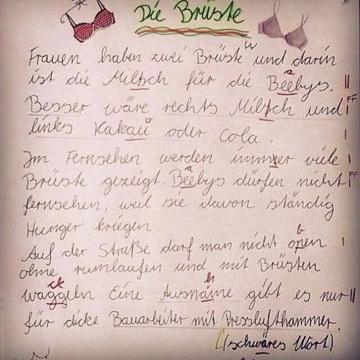 Die Brüste
Frauen haben zwei Brüste und darin
ist die Miltsch für die Beebys.
Besser wäre rechts Miltsch und
links Kakau oder Cola.
Im Fernsehen werden immer viele
Brüste gezeigt. Beebys dürfen nicht
fernsehen, weil sie davon ständig
Hunger kriegen
Auf der Straße darf man nicht open
ohne rumlaufen und mit Brüsten
waggeln Eine Ausname gibt es nur
für dicke Bauarbeiter mit Presslufthammer.
(schwäres Wort)